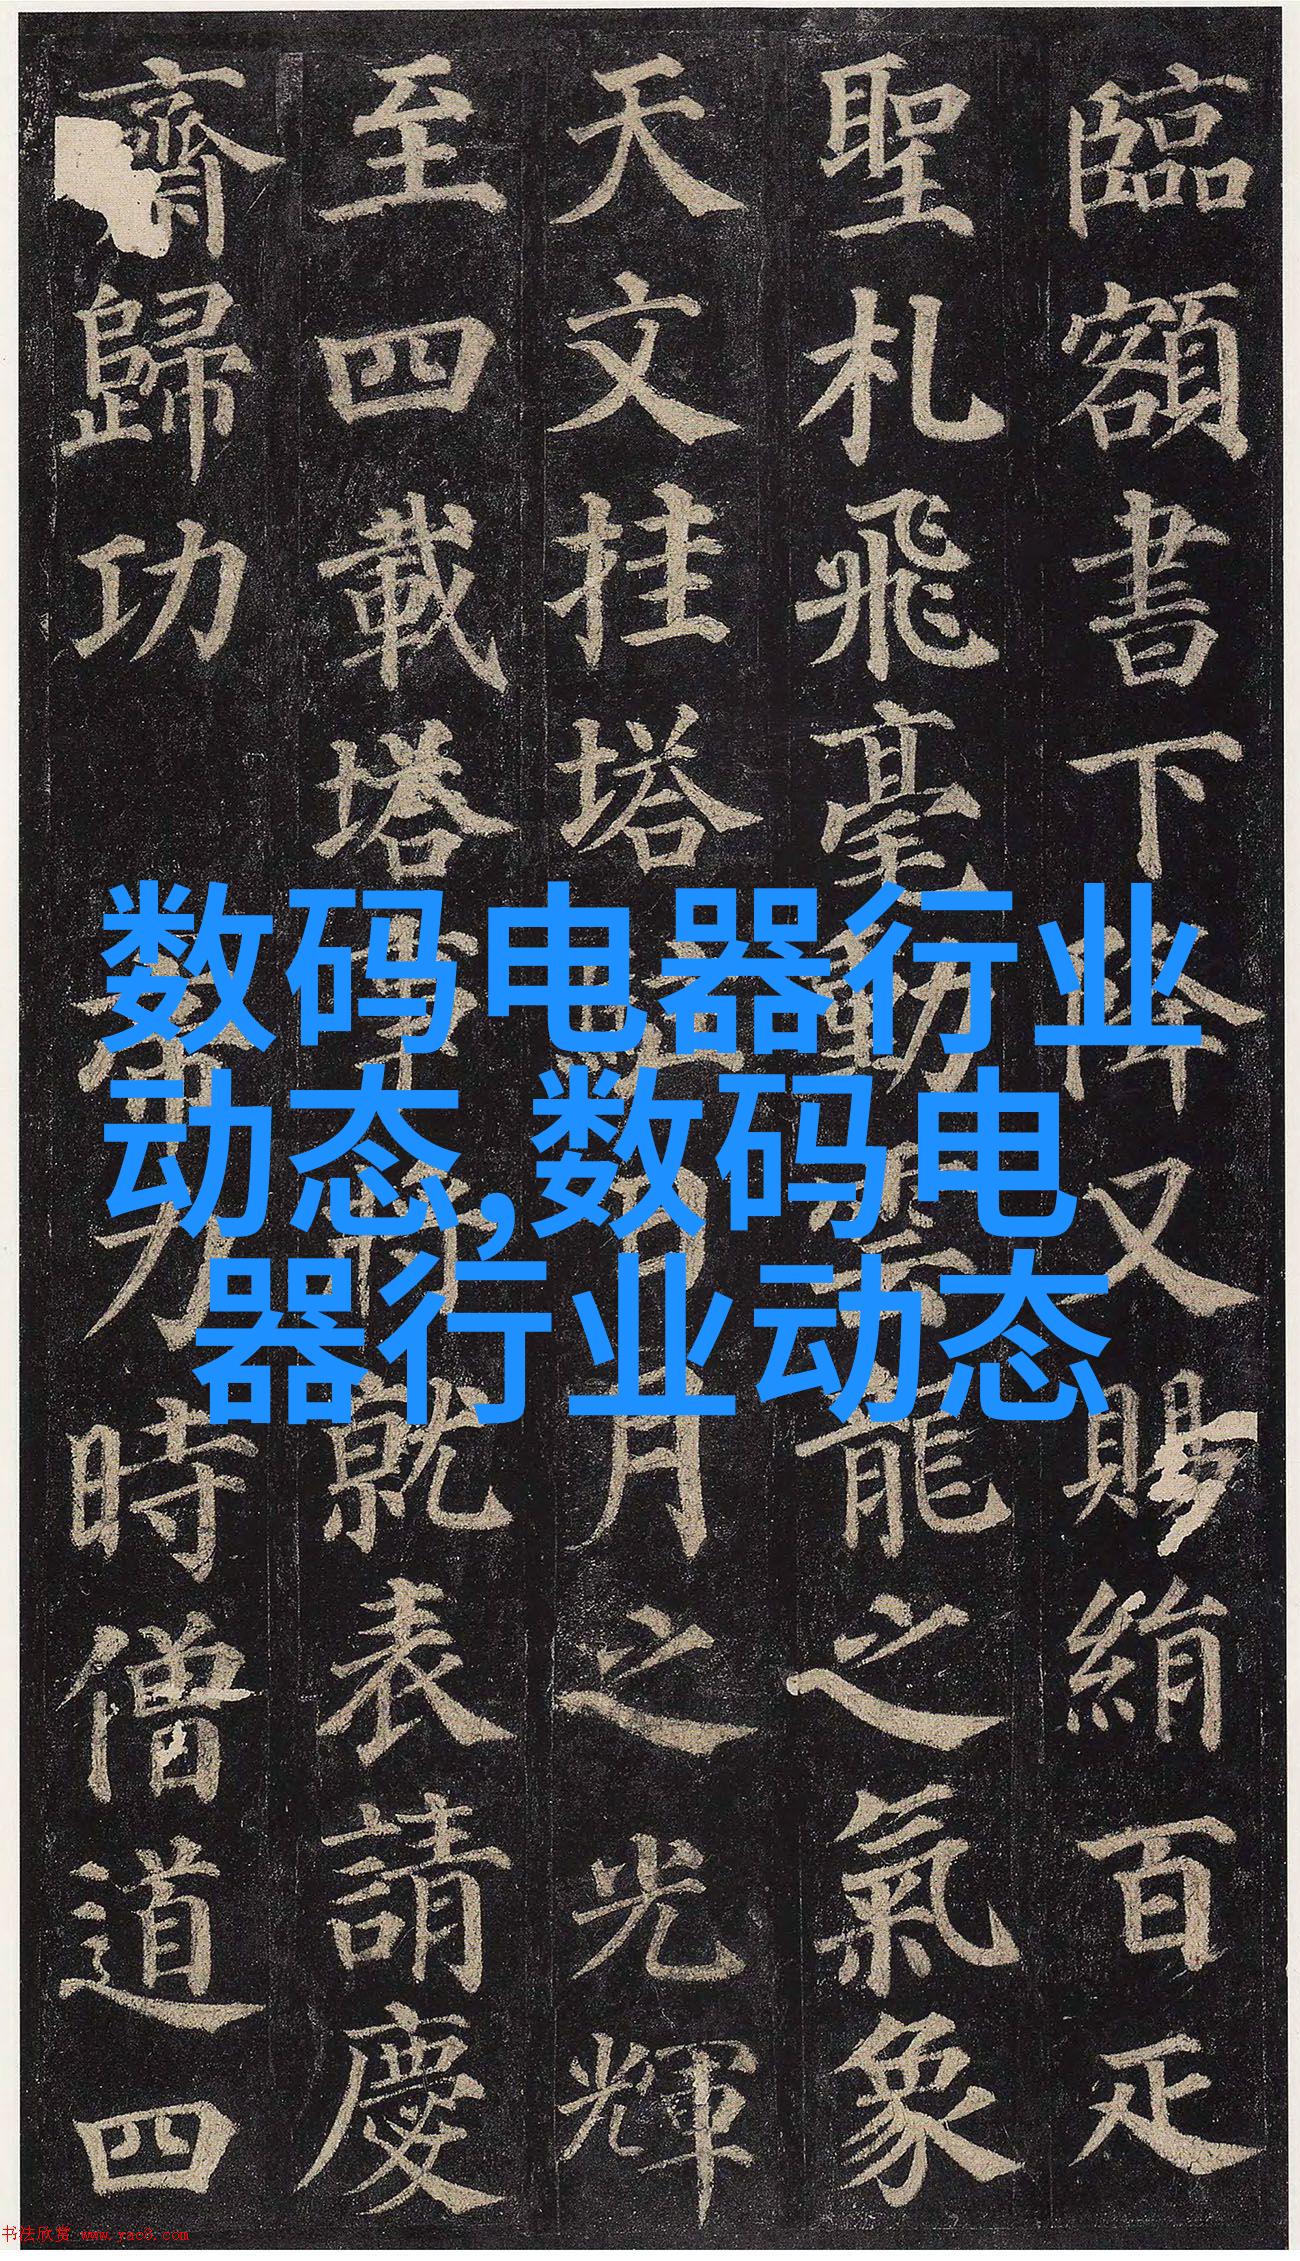 臨額書下降又賜絹百疋
聖札飛毫動雲龍之氣象
天文挂塔日月之光輝
至四載塔事就表請慶
齋歸功 帝力時僧道四
数码电器行业
动态,数码电
器行业动态
书法欣赏 www.yac8.com